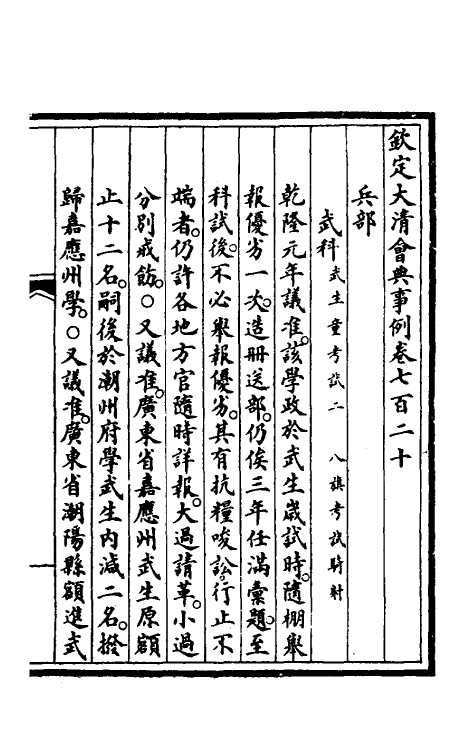 欽定大清會典事例卷七百二十
兵部
武科武生童考試二 八旗考試騎射
乾隆元年議准。該學政於武生歲試時。隨棚舉
報優劣一次。造冊送部。仍俟三年任滿彙題。至
科試後。不必舉報優劣。其有抗糧唆訟。行止不
端者。仍許各地方官隨時詳報。大過請革。小過
分別戒飭。○又議准。廣東省嘉應州武生原額
止十二名。嗣後於潮州府學武生內減二名。撥
歸嘉應州學。○又議准。廣東省潮陽縣額進武